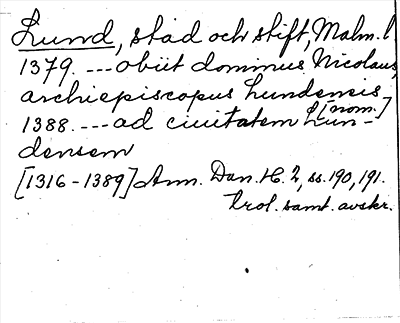 Lund, stad och stift, Malm. l
1379. --- obiit dominus Nicolaus,
archiepiscopus Lundensis
[nom.]
1388. --- ad ciuitatem Lun-
densem
[1316-1389] Ann. Dan. H. 2, ss. 190, 191.
trol. samt. avskr.